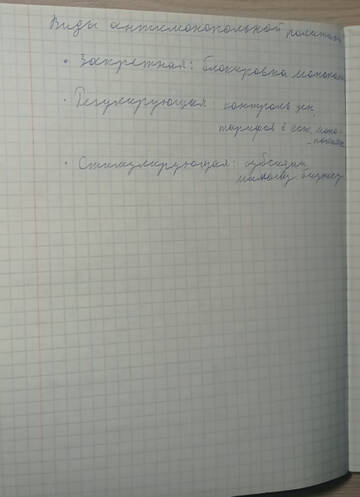 Виды антимонопольной политики
• Запретная: блокировка монополий
• Регулирующая контроль цен,
тарифов в ест. моно-
-полиях
• Стимулирующая: субсидии
малому бизнесу